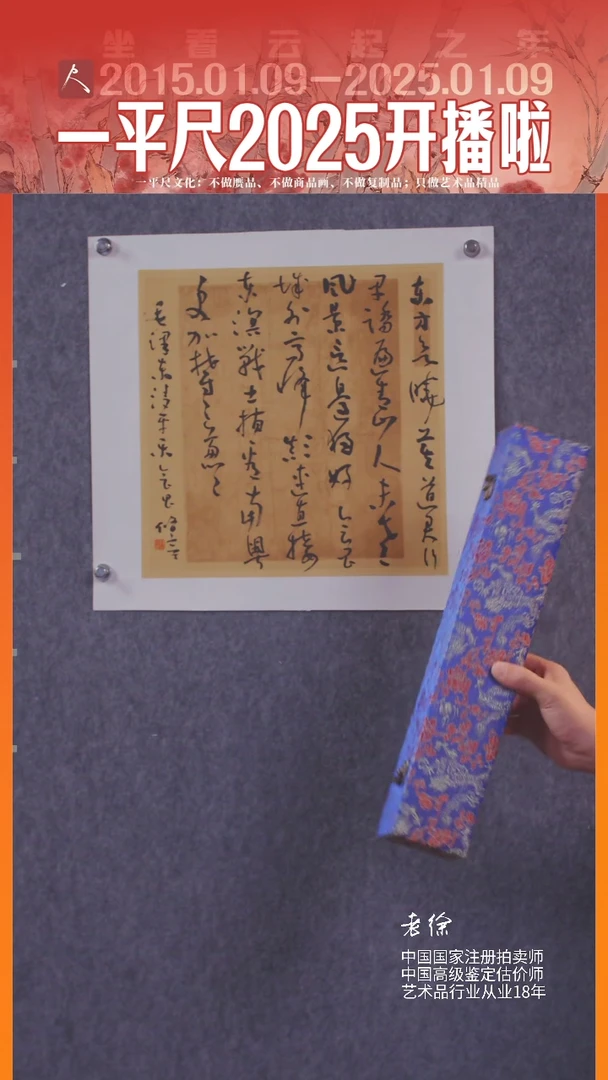 坐看云起之年
2015.01.09—2025.01.09
一平尺2025开播啦
一平尺文化：不做赝品、不做商品画、不做复制品；只做艺术品精品
东方欲晓莫道君行
早踏遍青山人未老
风景这边独好会昌
城外高峰颠连直接
东溟战士指看南粤
更加郁々葱々
毛泽东清平乐会昌
老徐
中国国家注册拍卖师
中国高级鉴定估价师
艺术品行业从业18年